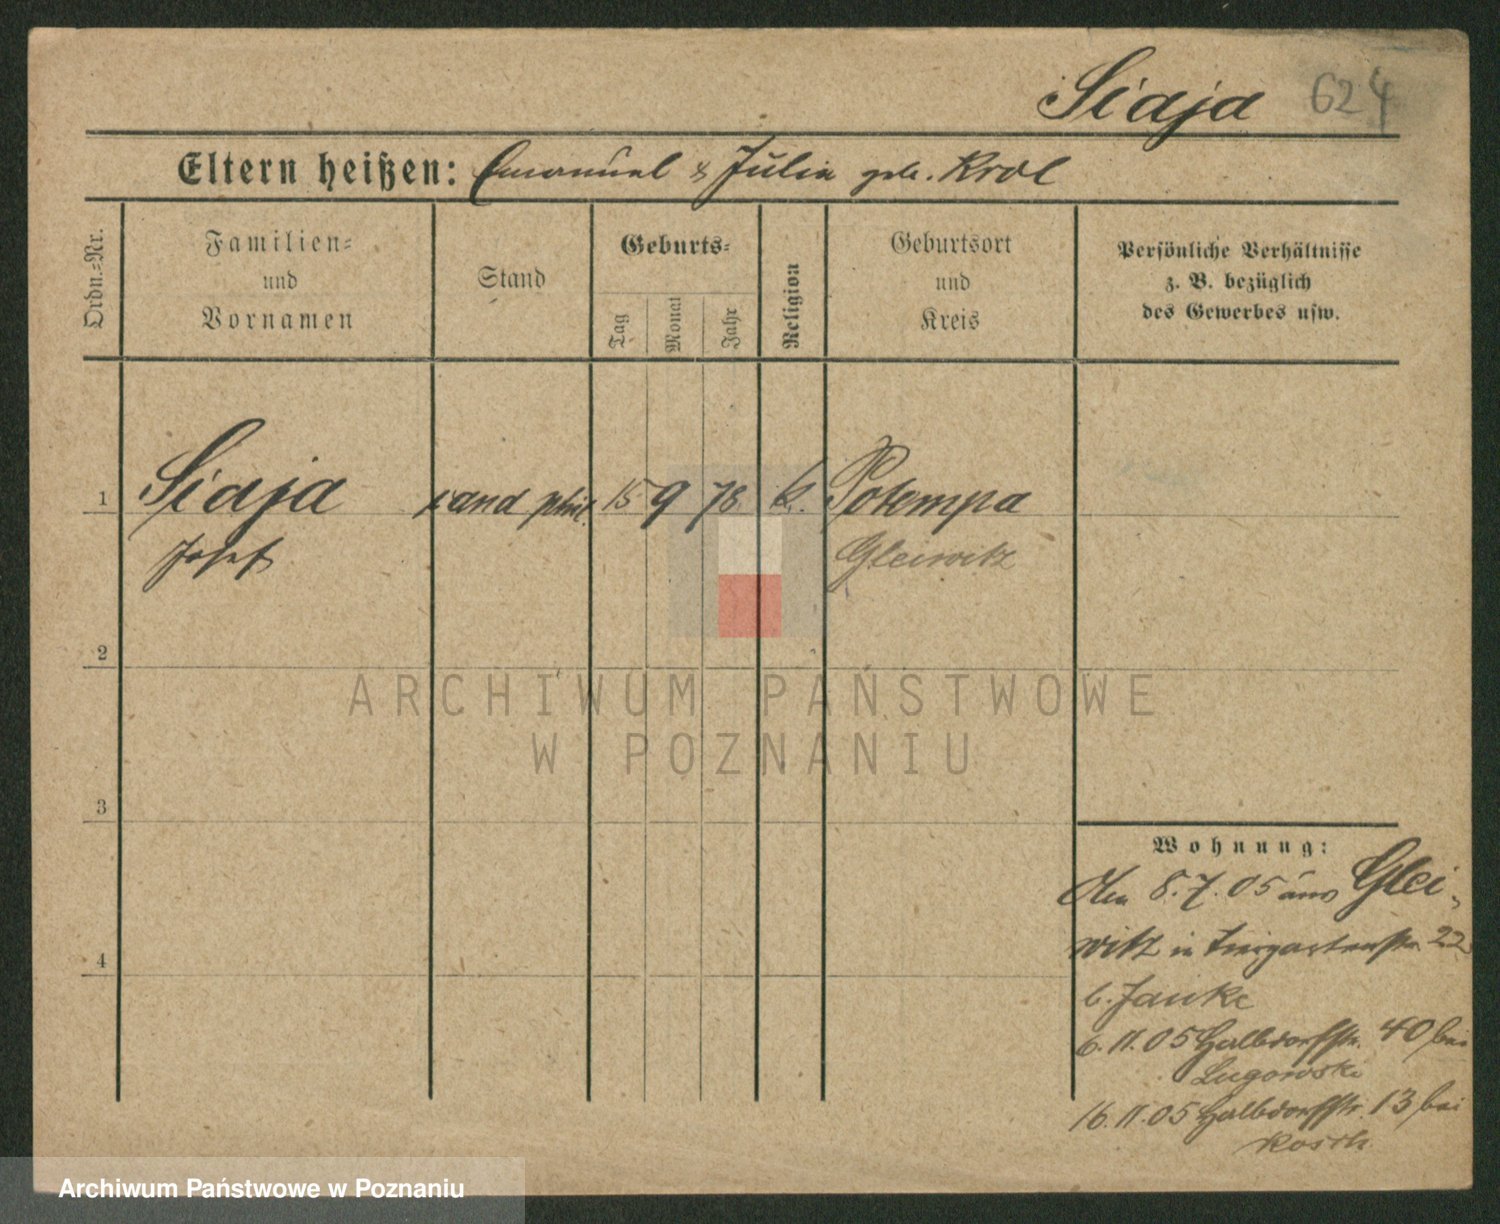 Siaja 624
Eltern heißen: Emanuel & Julia geb. Krol
Ordn.=Nr.
Familien=
und
Vornamen
Stand
Geburts=
Tag
Monat
Jahr
Religion
Geburtsort
und
Kreis
Persönliche Verhältnisse
z. B. bezüglich
des Gewerbes usw.
1 Siaja cand phil. 15 9 78. k. Potempa
Josef Gleiwitz
2
3
4
ARCHIWUM PAŃSTWOWE
W POZNANIU
Wohnung:
8.7.05 aus Glei-
witz in Tiergartenstr. 22
b. Janke
6.11.05 Halbdorfstr. 40 bei
Lugowski
16.11.05 Halbdorfstr. 13 bei
Archiwum Państwowe w Poznaniu